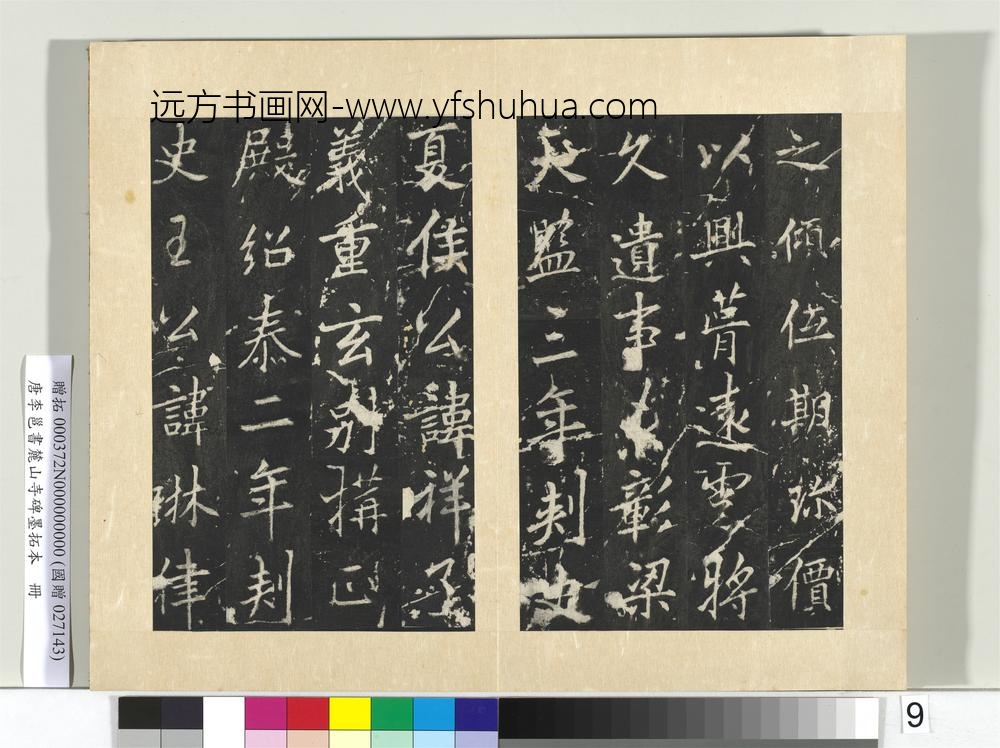 远方书画网-www.yfshuhua.com
之傾伍期珎價
以興菺遠雲將
久遺事彰梁
天監三年刺史
夏侯公諱祥
義重玄別搆正
殿紹泰二年刾
史王公諱琳律
贈拓 000372N000000000 (國贈 027143)
唐李邕書麓山寺碑墨拓本 冊
9